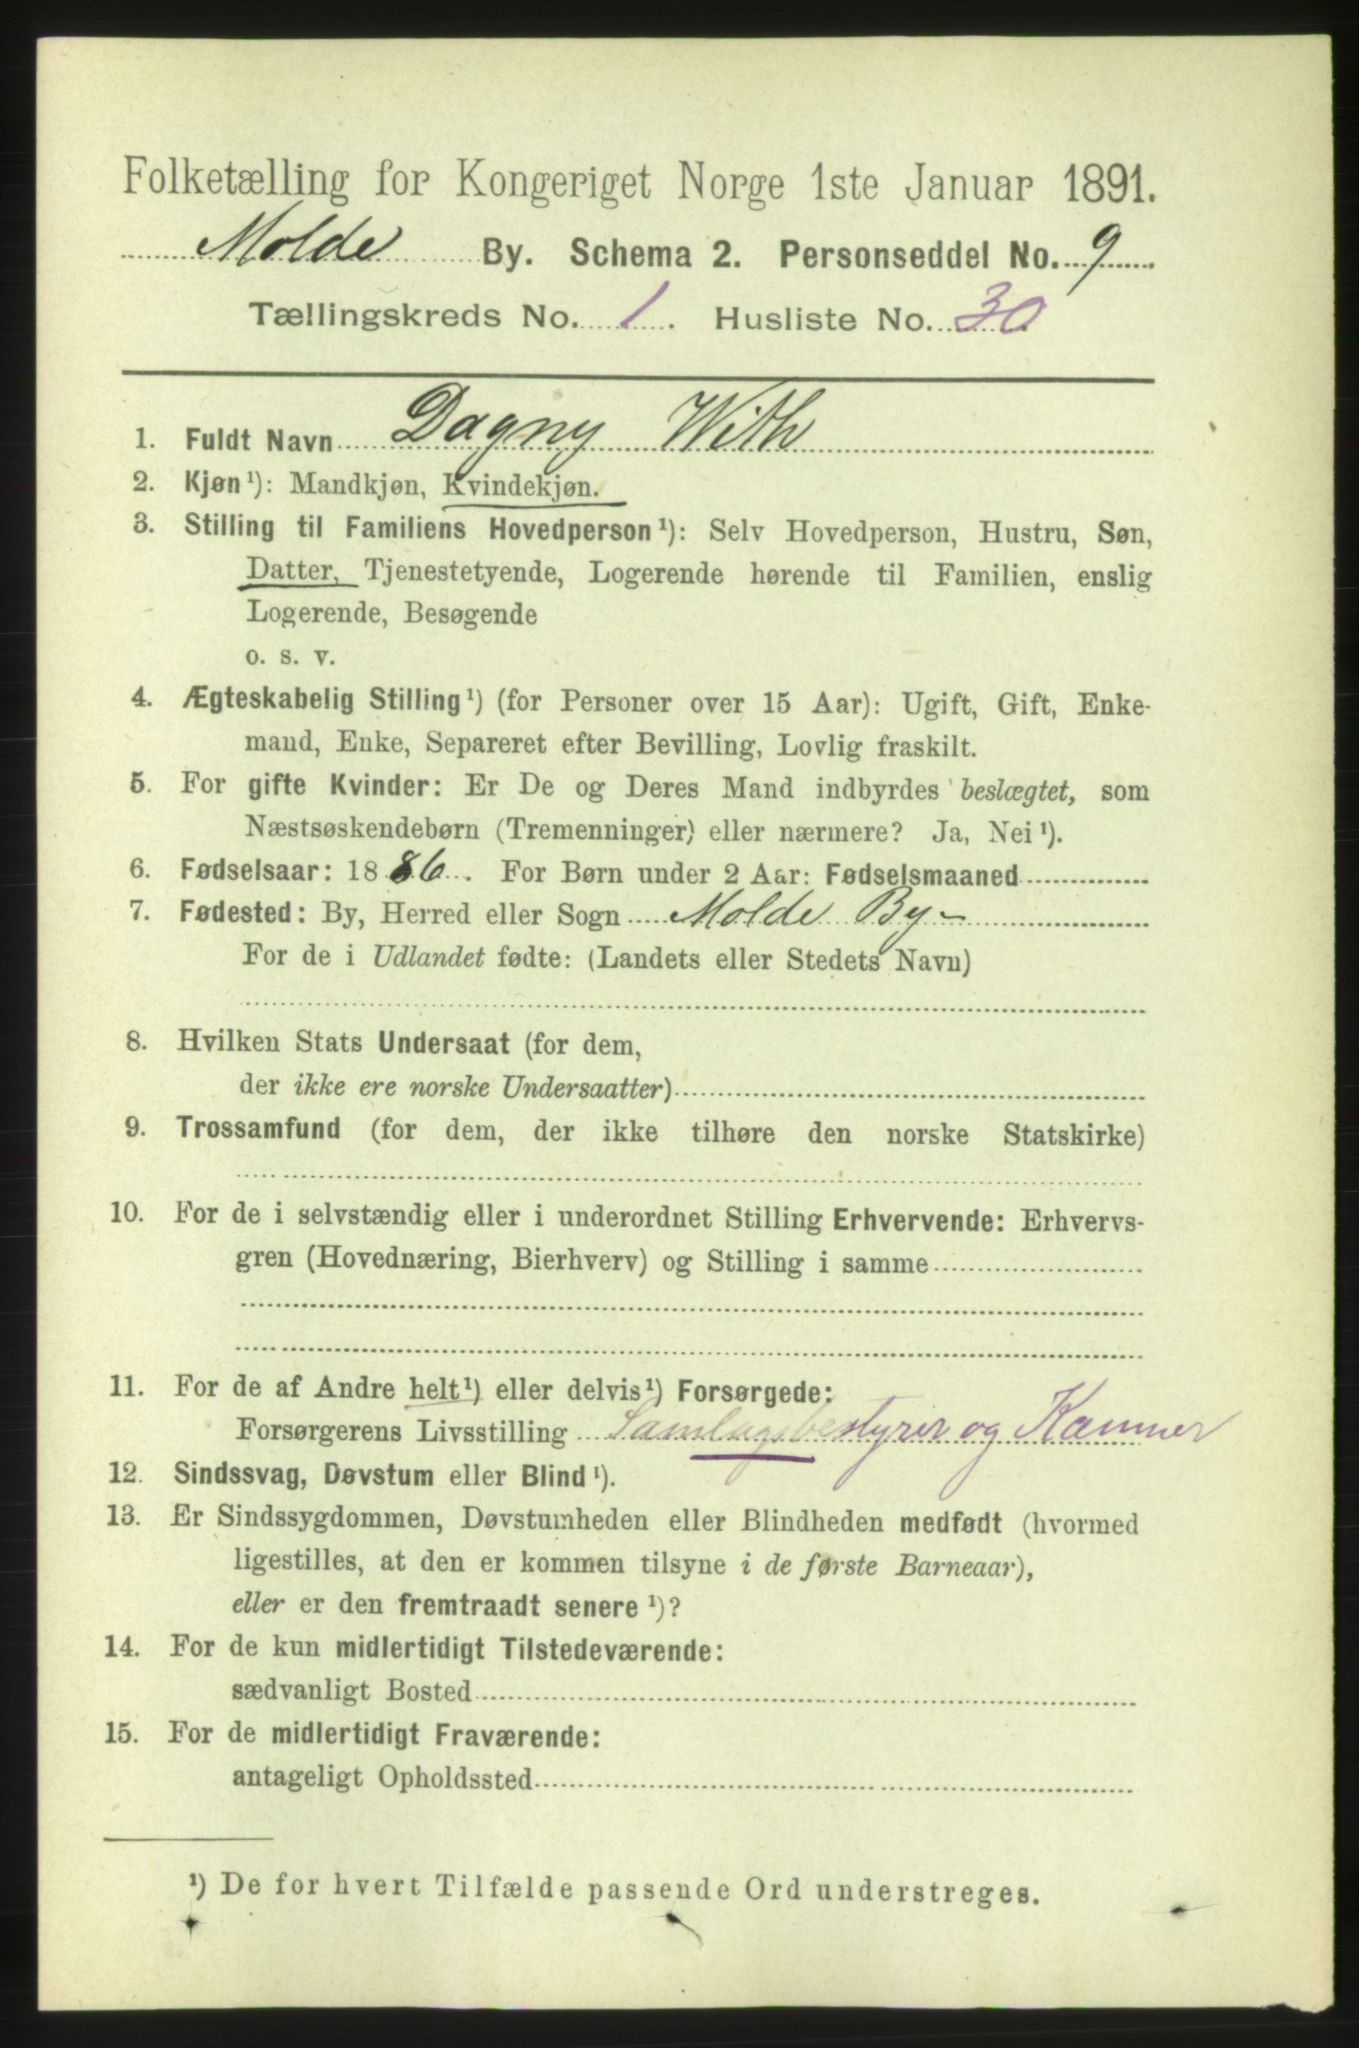 Folketælling for Kongeriget Norge 1ste Januar 1891.
Molde By. Schema 2. Personseddel No. 9
Tællingskreds No. 1. Husliste No. 30
1. Fuldt Navn Dagny With
2. Kjøn¹): Mandkjøn, Kvindekjøn.
3. Stilling til Familiens Hovedperson¹): Selv Hovedperson, Hustru, Søn,
Datter, Tjenestetyende, Logerende hørende til Familien, enslig
Logerende, Besøgende
o. s. v.
4. Ægteskabelig Stilling¹) (for Personer over 15 Aar): Ugift, Gift, Enke-
mand, Enke, Separeret efter Bevilling, Lovlig fraskilt.
5. For gifte Kvinder: Er De og Deres Mand indbyrdes beslægtet, som
Næstsøskendebørn (Tremenninger) eller nærmere? Ja, Nei¹).
6. Fødselsaar: 1886. For Børn under 2 Aar: Fødselsmaaned
7. Fødested: By, Herred eller Sogn Molde By
For de i Udlandet fødte: (Landets eller Stedets Navn)
8. Hvilken Stats Undersaat (for dem,
der ikke ere norske Undersaatter)
9. Trossamfund (for dem, der ikke tilhøre den norske Statskirke)
10. For de i selvstændig eller i underordnet Stilling Erhvervende: Erhvervs-
gren (Hovednæring, Bierhverv) og Stilling i samme
11. For de af Andre helt¹) eller delvis¹) Forsørgede:
Forsørgerens Livsstilling Samlagsbestyrer og Kæmner
12. Sindssvag, Døvstum eller Blind¹).
13. Er Sindssygdommen, Døvstumheden eller Blindheden medfødt (hvormed
ligestilles, at den er kommen tilsyne i de første Barneaar),
eller er den fremtraadt senere¹)?
14. For de kun midlertidigt Tilstedeværende:
sædvanligt Bosted
15. For de midlertidigt Fraværende:
antageligt Opholdssted
¹) De for hvert Tilfælde passende Ord understreges.